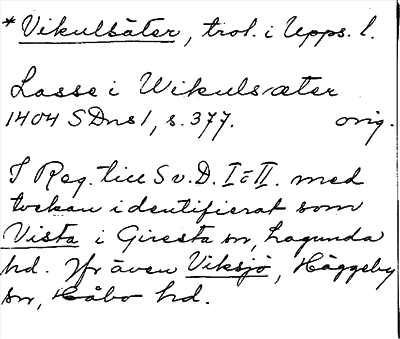 *Vikulsäter, trol. i Upps. l.
Lasse i Wikulsæter
1404 SDns 1, s. 377. orig.
I Reg. till Sv. D. I-II. med
tvekan identifierat som
Vista i Giresta sn, Lagunda
hd. Jfr även Viksjö, Häggeby
sn, Håbo hd.